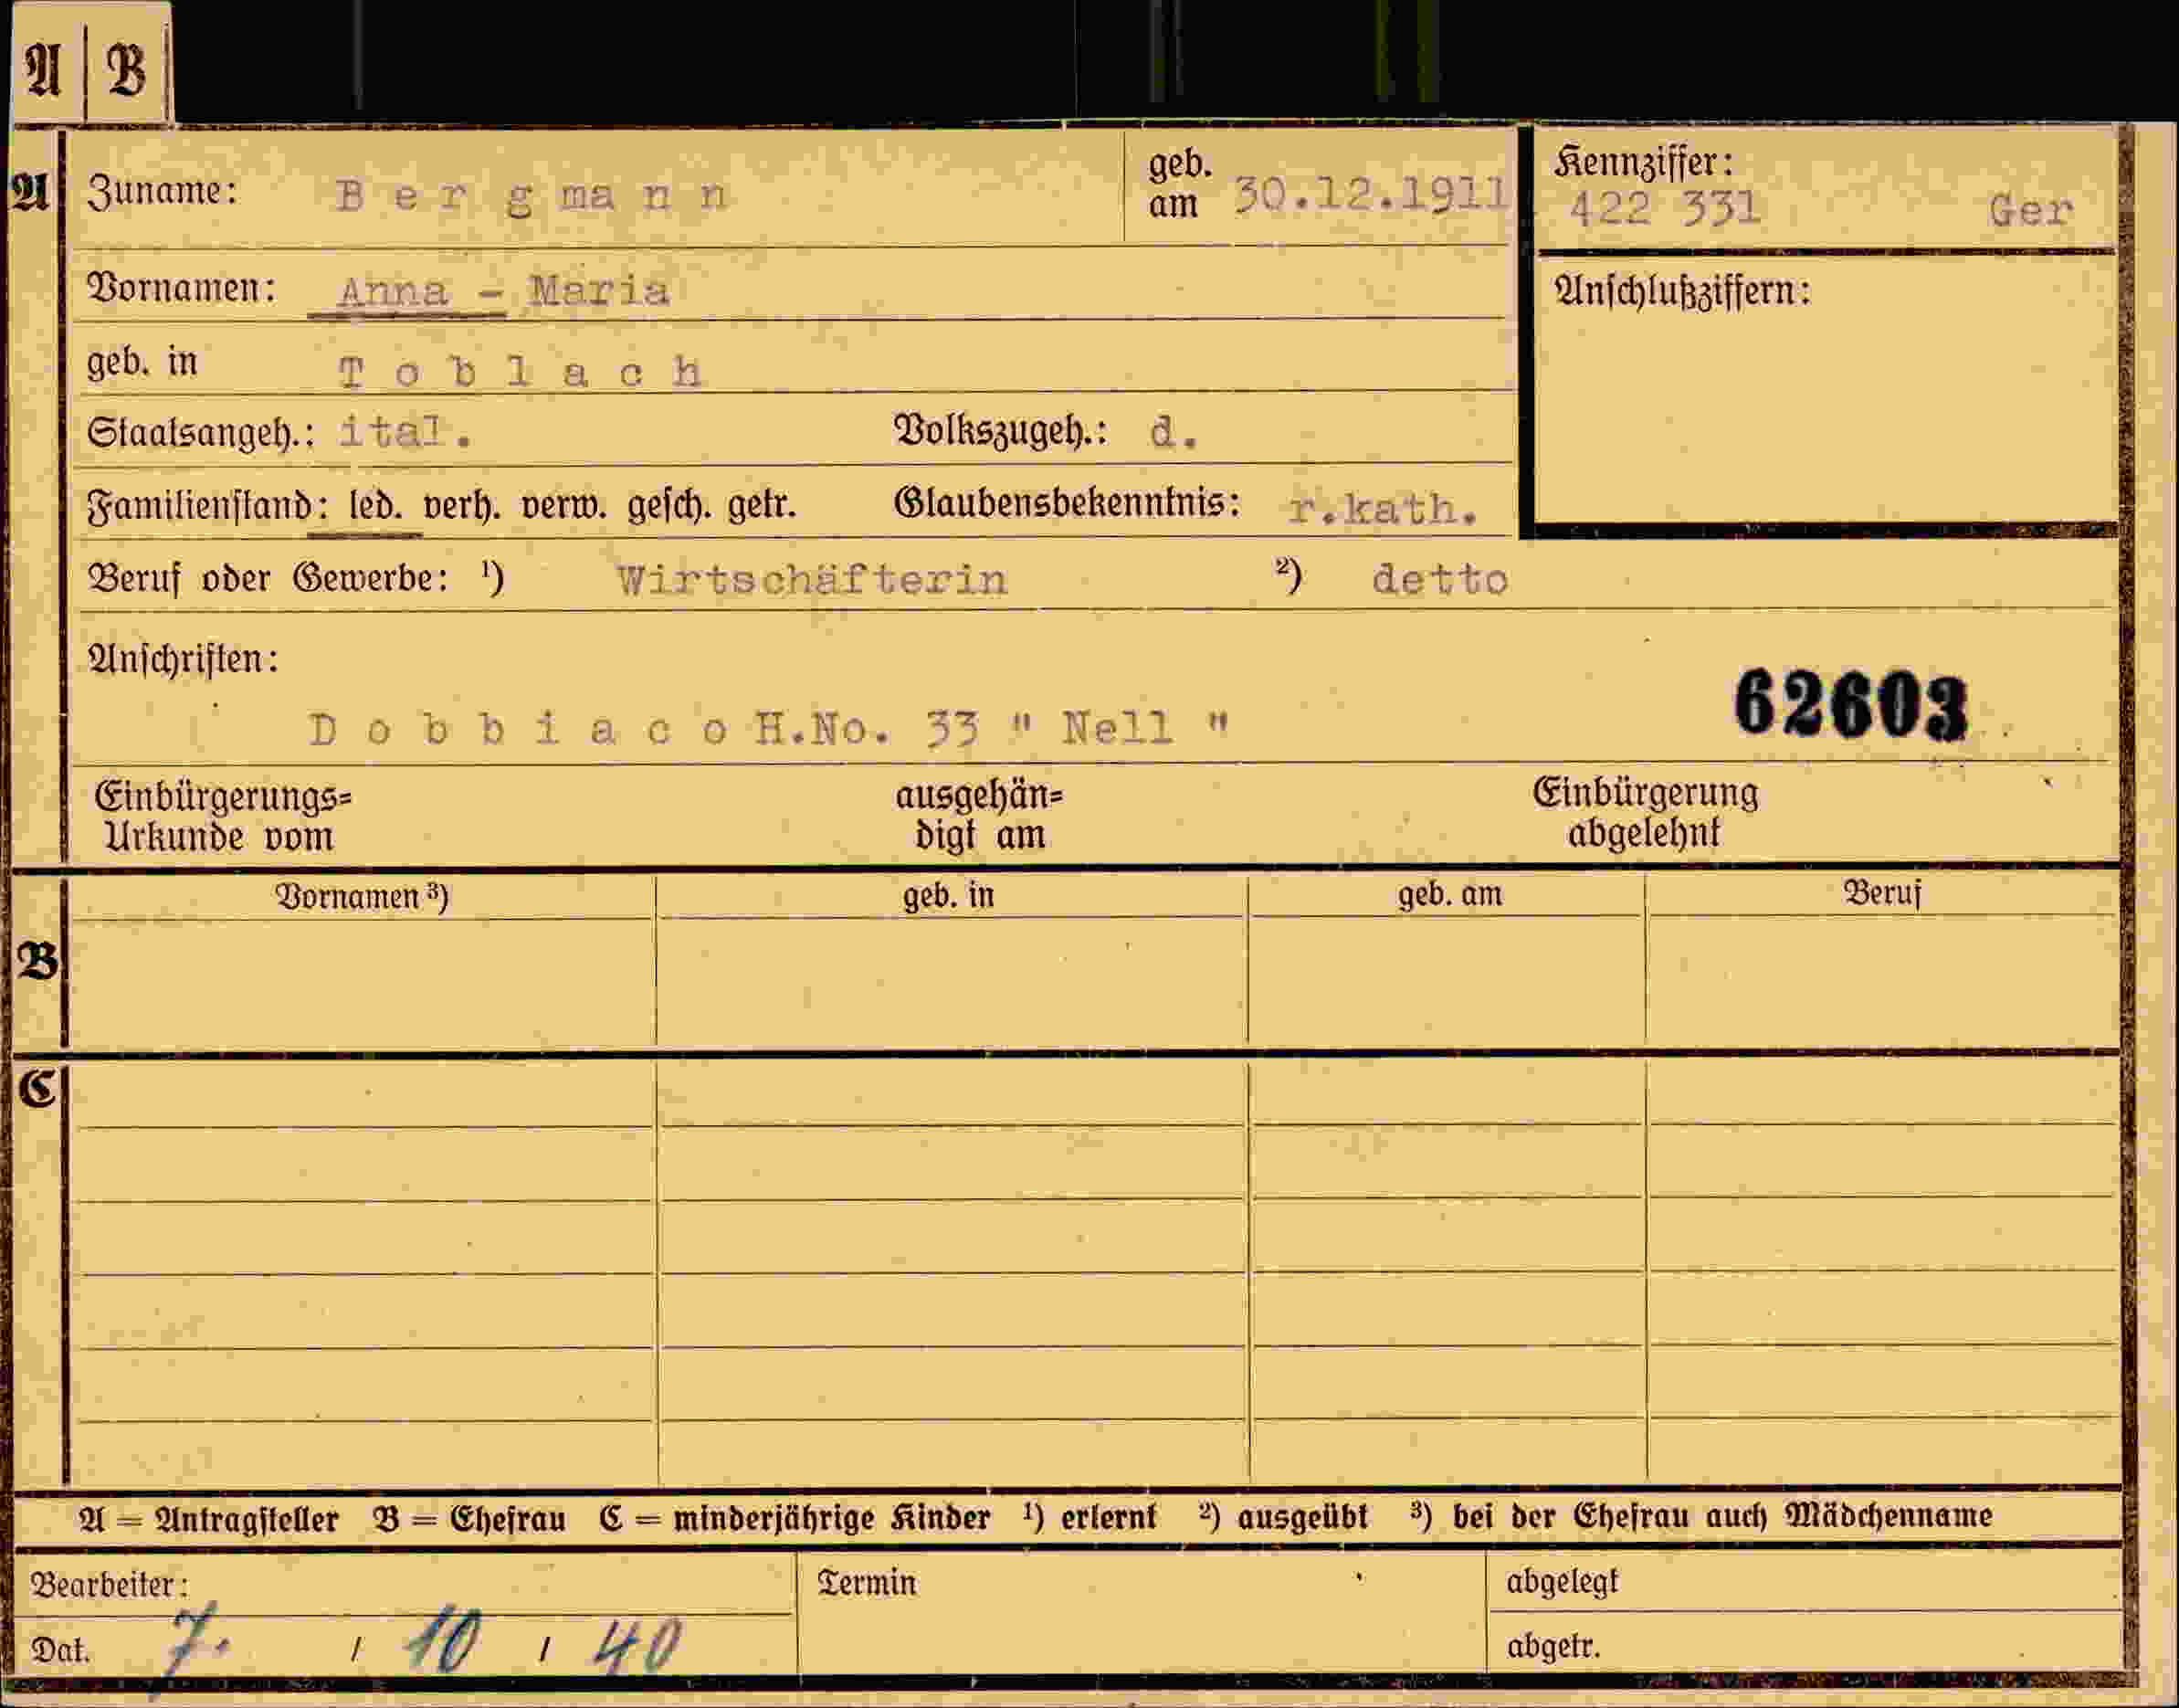 A | B
A Zuname: Bergmann geb. am 30.12.1911 Kennziffer: 422 331 Ger
Vornamen: Anna - Maria Anschlußziffern:
geb. in Toblach
Staatsangeh.: ital. Volkszugeh.: d.
Familienstand: led. verh. verw. gesch. getr. Glaubensbekenntnis: r.kath.
Beruf oder Gewerbe: ¹) Wirtschäfterin ²) detto
Anschriften:
Dobbiaco H.No. 33 " Nell " 62603
Einbürgerungs= ausgehän= Einbürgerung
Urkunde vom digt am abgelehnt
Vornamen ³) geb. in geb. am Beruf
B
C
A = Antragsteller B = Ehefrau C = minderjährige Kinder ¹) erlernt ²) ausgeübt ³) bei der Ehefrau auch Mädchenname
Bearbeiter: Termin abgelegt
Dat. 7. / 10 / 40 abgetr.